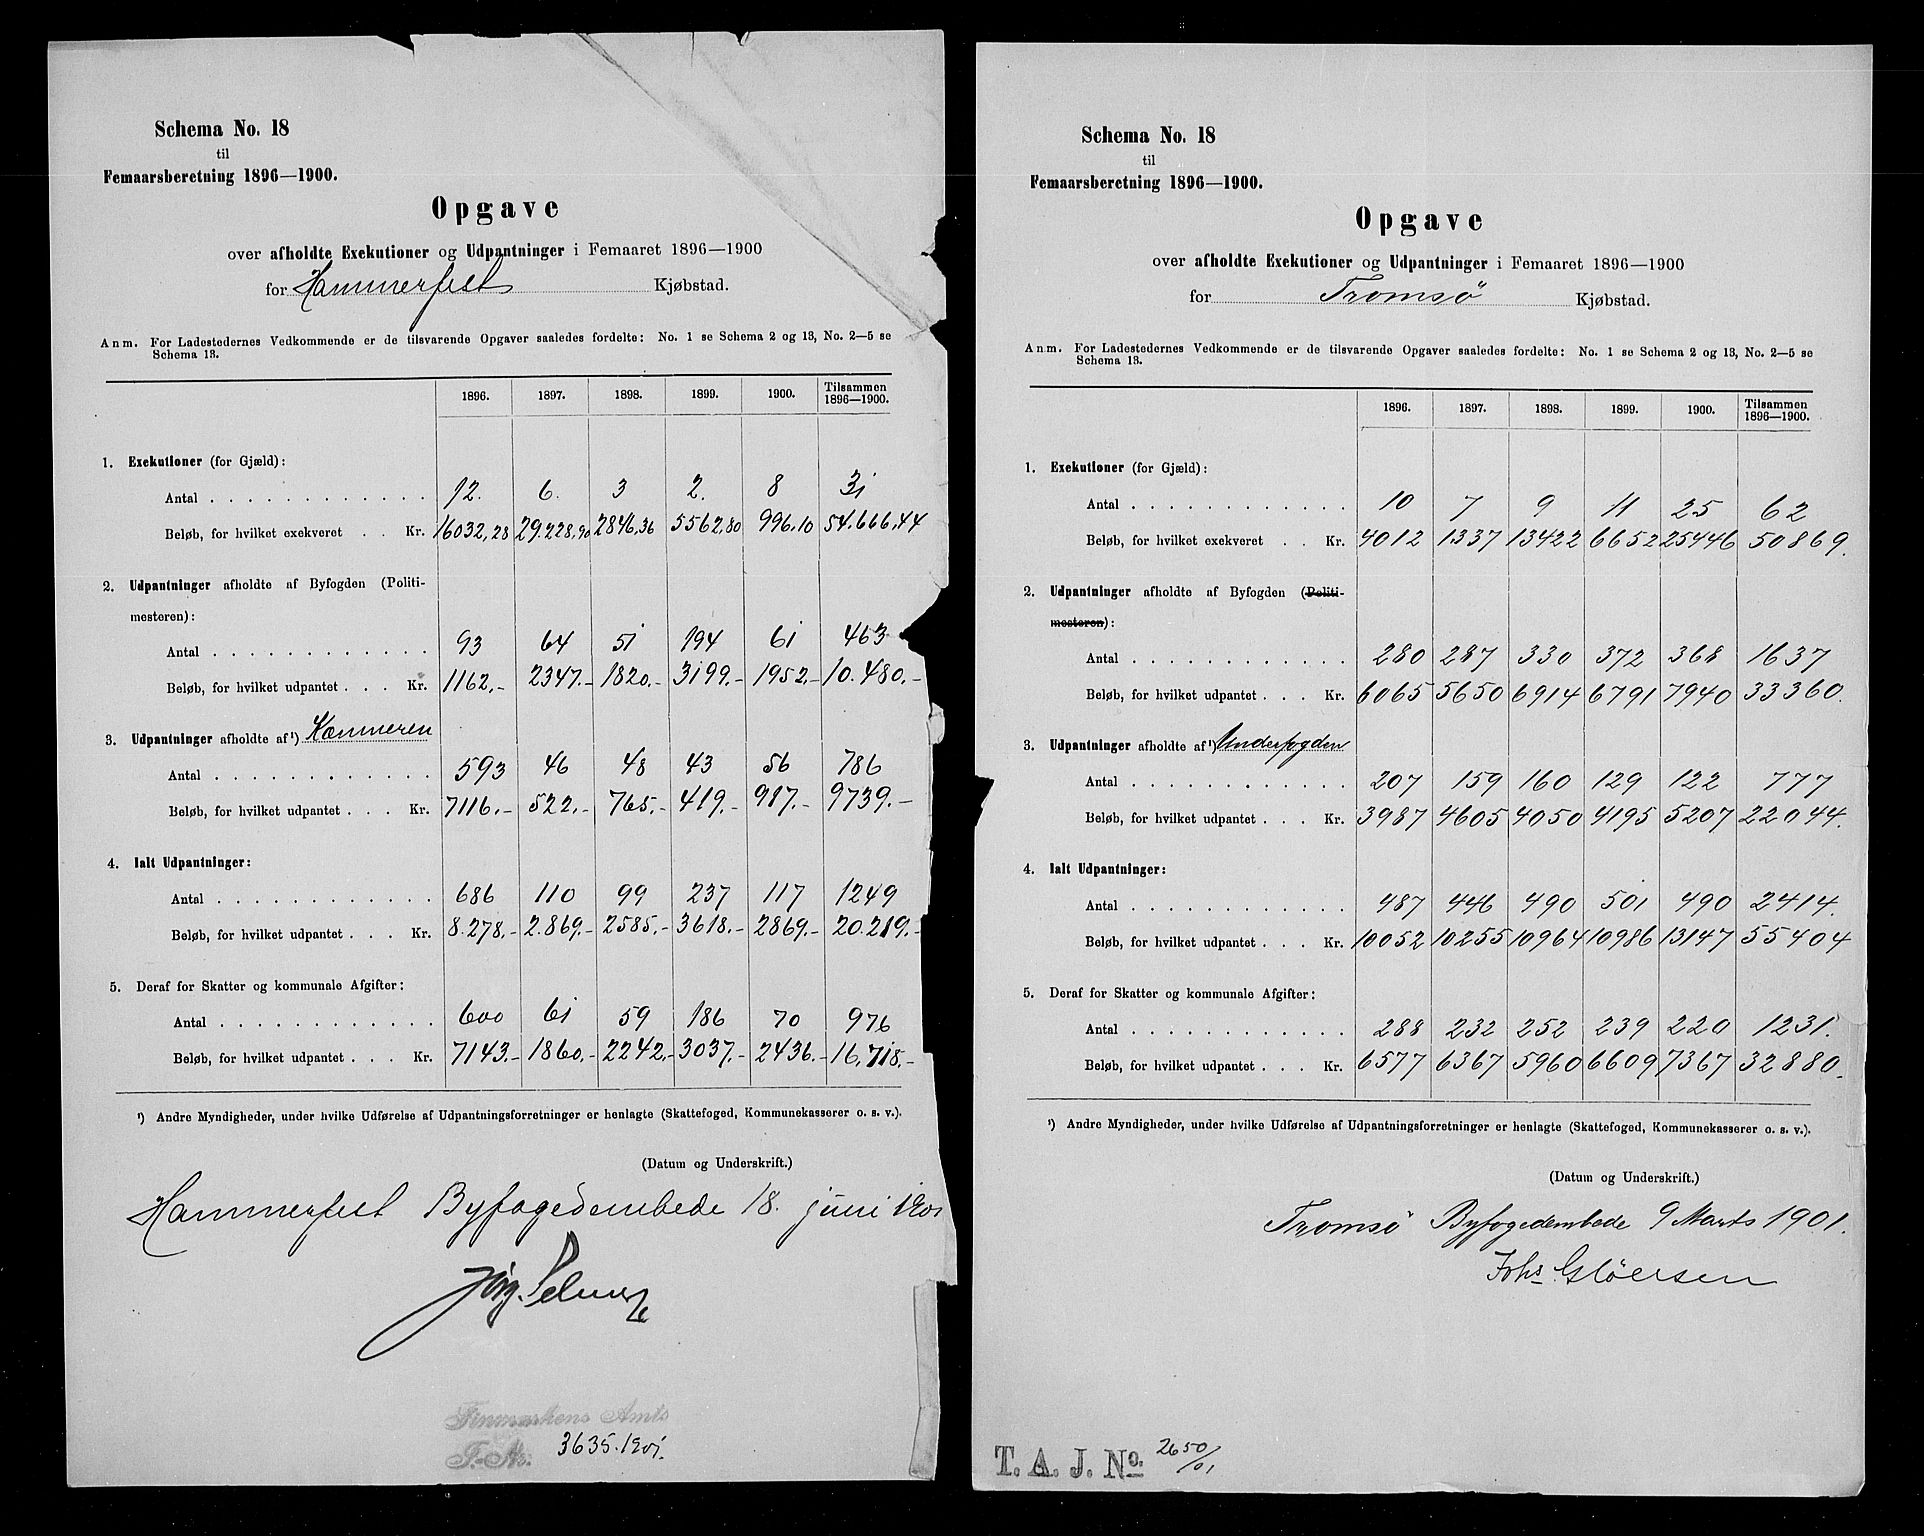 Schema No. 18
til
Femaarsberetning 1896—1900.
Opgave
over afholdte Exekutioner og Udpantninger i Femaaret 1896—1900
for Hammerfest Kjøbstad.
Anm. For Ladestedernes Vedkommende er de tilsvarende Opgaver saaledes fordelte: No. 1 se Schema 2 og 13, No. 2—5 se
Schema 13.
1896. 1897. 1898. 1899. 1900. Tilsammen 1896—1900.
1. Exekutioner (for Gjæld):
Antal 12. 6. 3 2. 8 31
Beløb, for hvilket exekveret Kr. 16032,28 29.228,90 2846,36 5562,80 996,10 54.666,44
2. Udpantninger afholdte af Byfogden (Politi-
mesteren):
Antal 93 64 51 194 61 463
Beløb, for hvilket udpantet Kr. 1162.- 2347.- 1820.- 3199.- 1952.- 10.480.-
3. Udpantninger afholdte af ¹) Kæmneren
Antal 593 46 48 43 56 786
Beløb, for hvilket udpantet Kr. 7116.- 522.- 765.- 419.- 917.- 9739.-
4. Ialt Udpantninger:
Antal 686 110 99 237 117 1249
Beløb, for hvilket udpantet Kr. 8.278.- 2.869.- 2585.- 3618.- 2869.- 20.219.-
5. Deraf for Skatter og kommunale Afgifter:
Antal 600 61 59 186 70 976
Beløb, for hvilket udpantet Kr. 7143.- 1860.- 2242.- 3037.- 2436.- 16.718.-
¹) Andre Myndigheder, under hvilke Udførelse af Udpantningsforretninger er henlagte (Skattefoged, Kommunekasserer o. s. v.).
(Datum og Underskrift.)
Hammerfest Byfogedembede 18. juni 1901
Jørg. Selmer
Finmarkens Amts
J.-No. 3635.1901.
Schema No. 18
til
Femaarsberetning 1896—1900.
Opgave
over afholdte Exekutioner og Udpantninger i Femaaret 1896—1900
for Tromsö Kjøbstad.
Anm. For Ladestedernes Vedkommende er de tilsvarende Opgaver saaledes fordelte: No. 1 se Schema 2 og 13, No. 2—5 se
Schema 13.
1896. 1897. 1898. 1899. 1900. Tilsammen 1896—1900.
1. Exekutioner (for Gjæld):
Antal 10 7 9 11 25 62
Beløb, for hvilket exekveret Kr. 4012 1337 13422 6652 25446 50869.
2. Udpantninger afholdte af Byfogden (Politi-
mesteren):
Antal 280 287 330 372 368 1637
Beløb, for hvilket udpantet Kr. 6065 5650 6914 6791 7940 33360.
3. Udpantninger afholdte af ¹) Underfogden
Antal 207 159 160 129 122 777
Beløb, for hvilket udpantet Kr. 3987 4605 4050 4195 5207 22044.
4. Ialt Udpantninger:
Antal 487 446 490 501 490 2414.
Beløb, for hvilket udpantet Kr. 10052 10255 10964 10986 13147 55404
5. Deraf for Skatter og kommunale Afgifter:
Antal 288 232 252 239 220 1231.
Beløb, for hvilket udpantet Kr. 6577 6367 5960 6609 7367 32880.
¹) Andre Myndigheder, under hvilke Udførelse af Udpantningsforretninger er henlagte (Skattefoged, Kommunekasserer o. s. v.).
(Datum og Underskrift.)
Tromsö Byfogedembede 9 Marts 1901.
Johs Gløersen
T. A. J. No. 2650/01